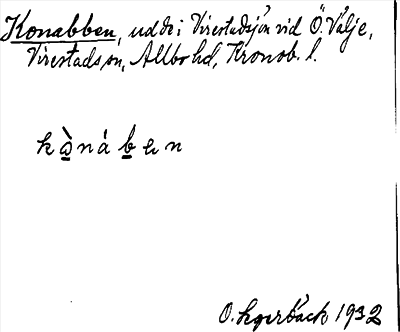 Konabben, udde i Virestadsjön vid Ö. Välje,
Virestads sn, Allbo hd, Kronob. l.
k ò n á b e n
O. 1932